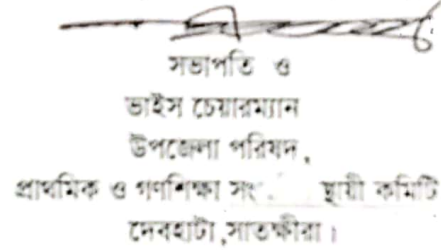 সভাপতি ও
ভাইস চেয়ারম্যান
উপজেলা পরিষদ,
প্রাথমিক ও গণশিক্ষা সং স্থায়ী কমিটি
দেবহাটা,সাতক্ষীরা।